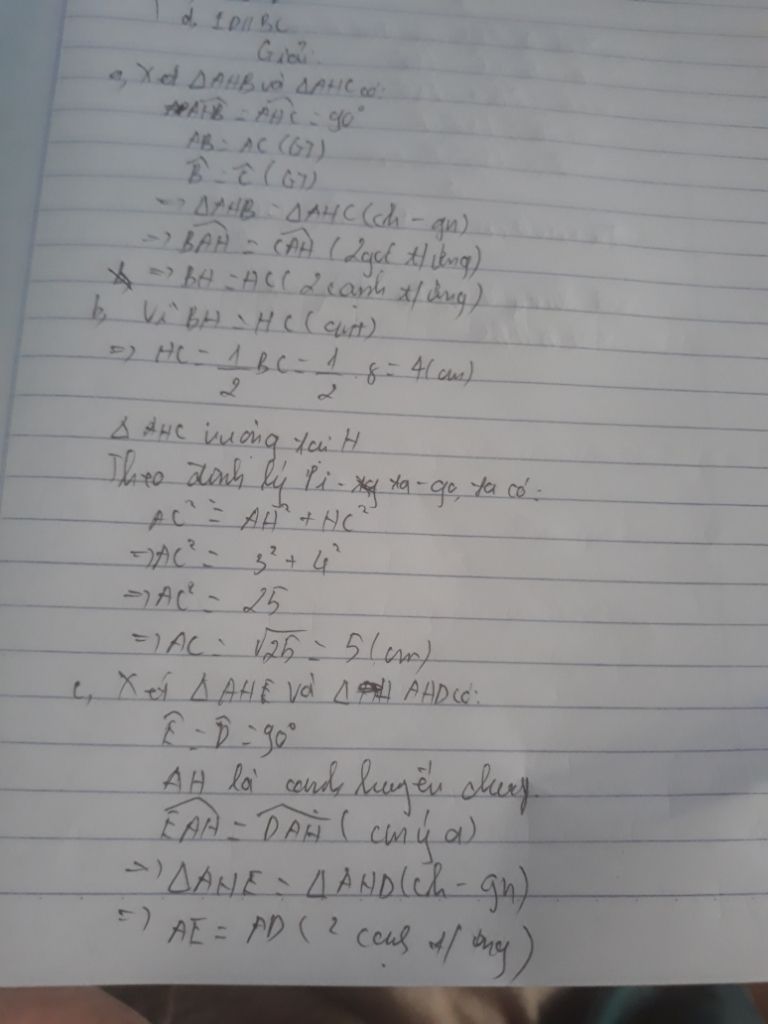 d, ID // BC
Giải:
a, Xét ΔAHB và ΔAHC có:
AHB = AHC = 90°
AB = AC (GT)
B̂ = Ĉ (GT)
=> ΔAHB = ΔAHC (ch - gn)
=> BAH = CAH (2 góc t/ứng)
=> BH = HC (2 cạnh t/ứng)
b, Vì BH = HC (cmt)
=> HC = 1/2 BC = 1/2 . 8 = 4 (cm)
Δ AHC vuông tại H
Theo định lý Pi-ta-go, ta có:
AC² = AH² + HC²
=> AC² = 3² + 4²
=> AC² = 25
=> AC = √25 = 5 (cm)
c, Xét Δ AHE và Δ AHD có:
Ê = D̂ = 90°
AH là cạnh huyền chung
EAH = DAH (cm ý a)
=> ΔAHE = ΔAHD (ch - gn)
=> AE = AD (2 cạnh t/ứng)